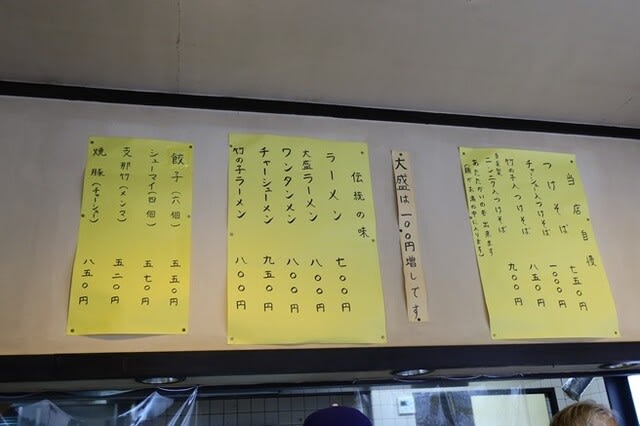 当店自慢
つけそば 七五〇円
チャーシュー入つけそば 一〇〇〇円
竹の子入つけそば 八五〇円
ニンニク入つけそば 九〇〇円
あたたかいのも出来ます
大盛は一〇〇円増しです
伝統の味
ラーメン 七〇〇円
大盛ラーメン 八〇〇円
ワンタンメン 八〇〇円
チャーシューメン 九五〇円
竹の子ラーメン 八〇〇円
餃子(六個) 五五〇円
シューマイ(四個) 五七〇円
支那竹(メンマ) 五二〇円
焼豚(チャーシュー) 八五〇円